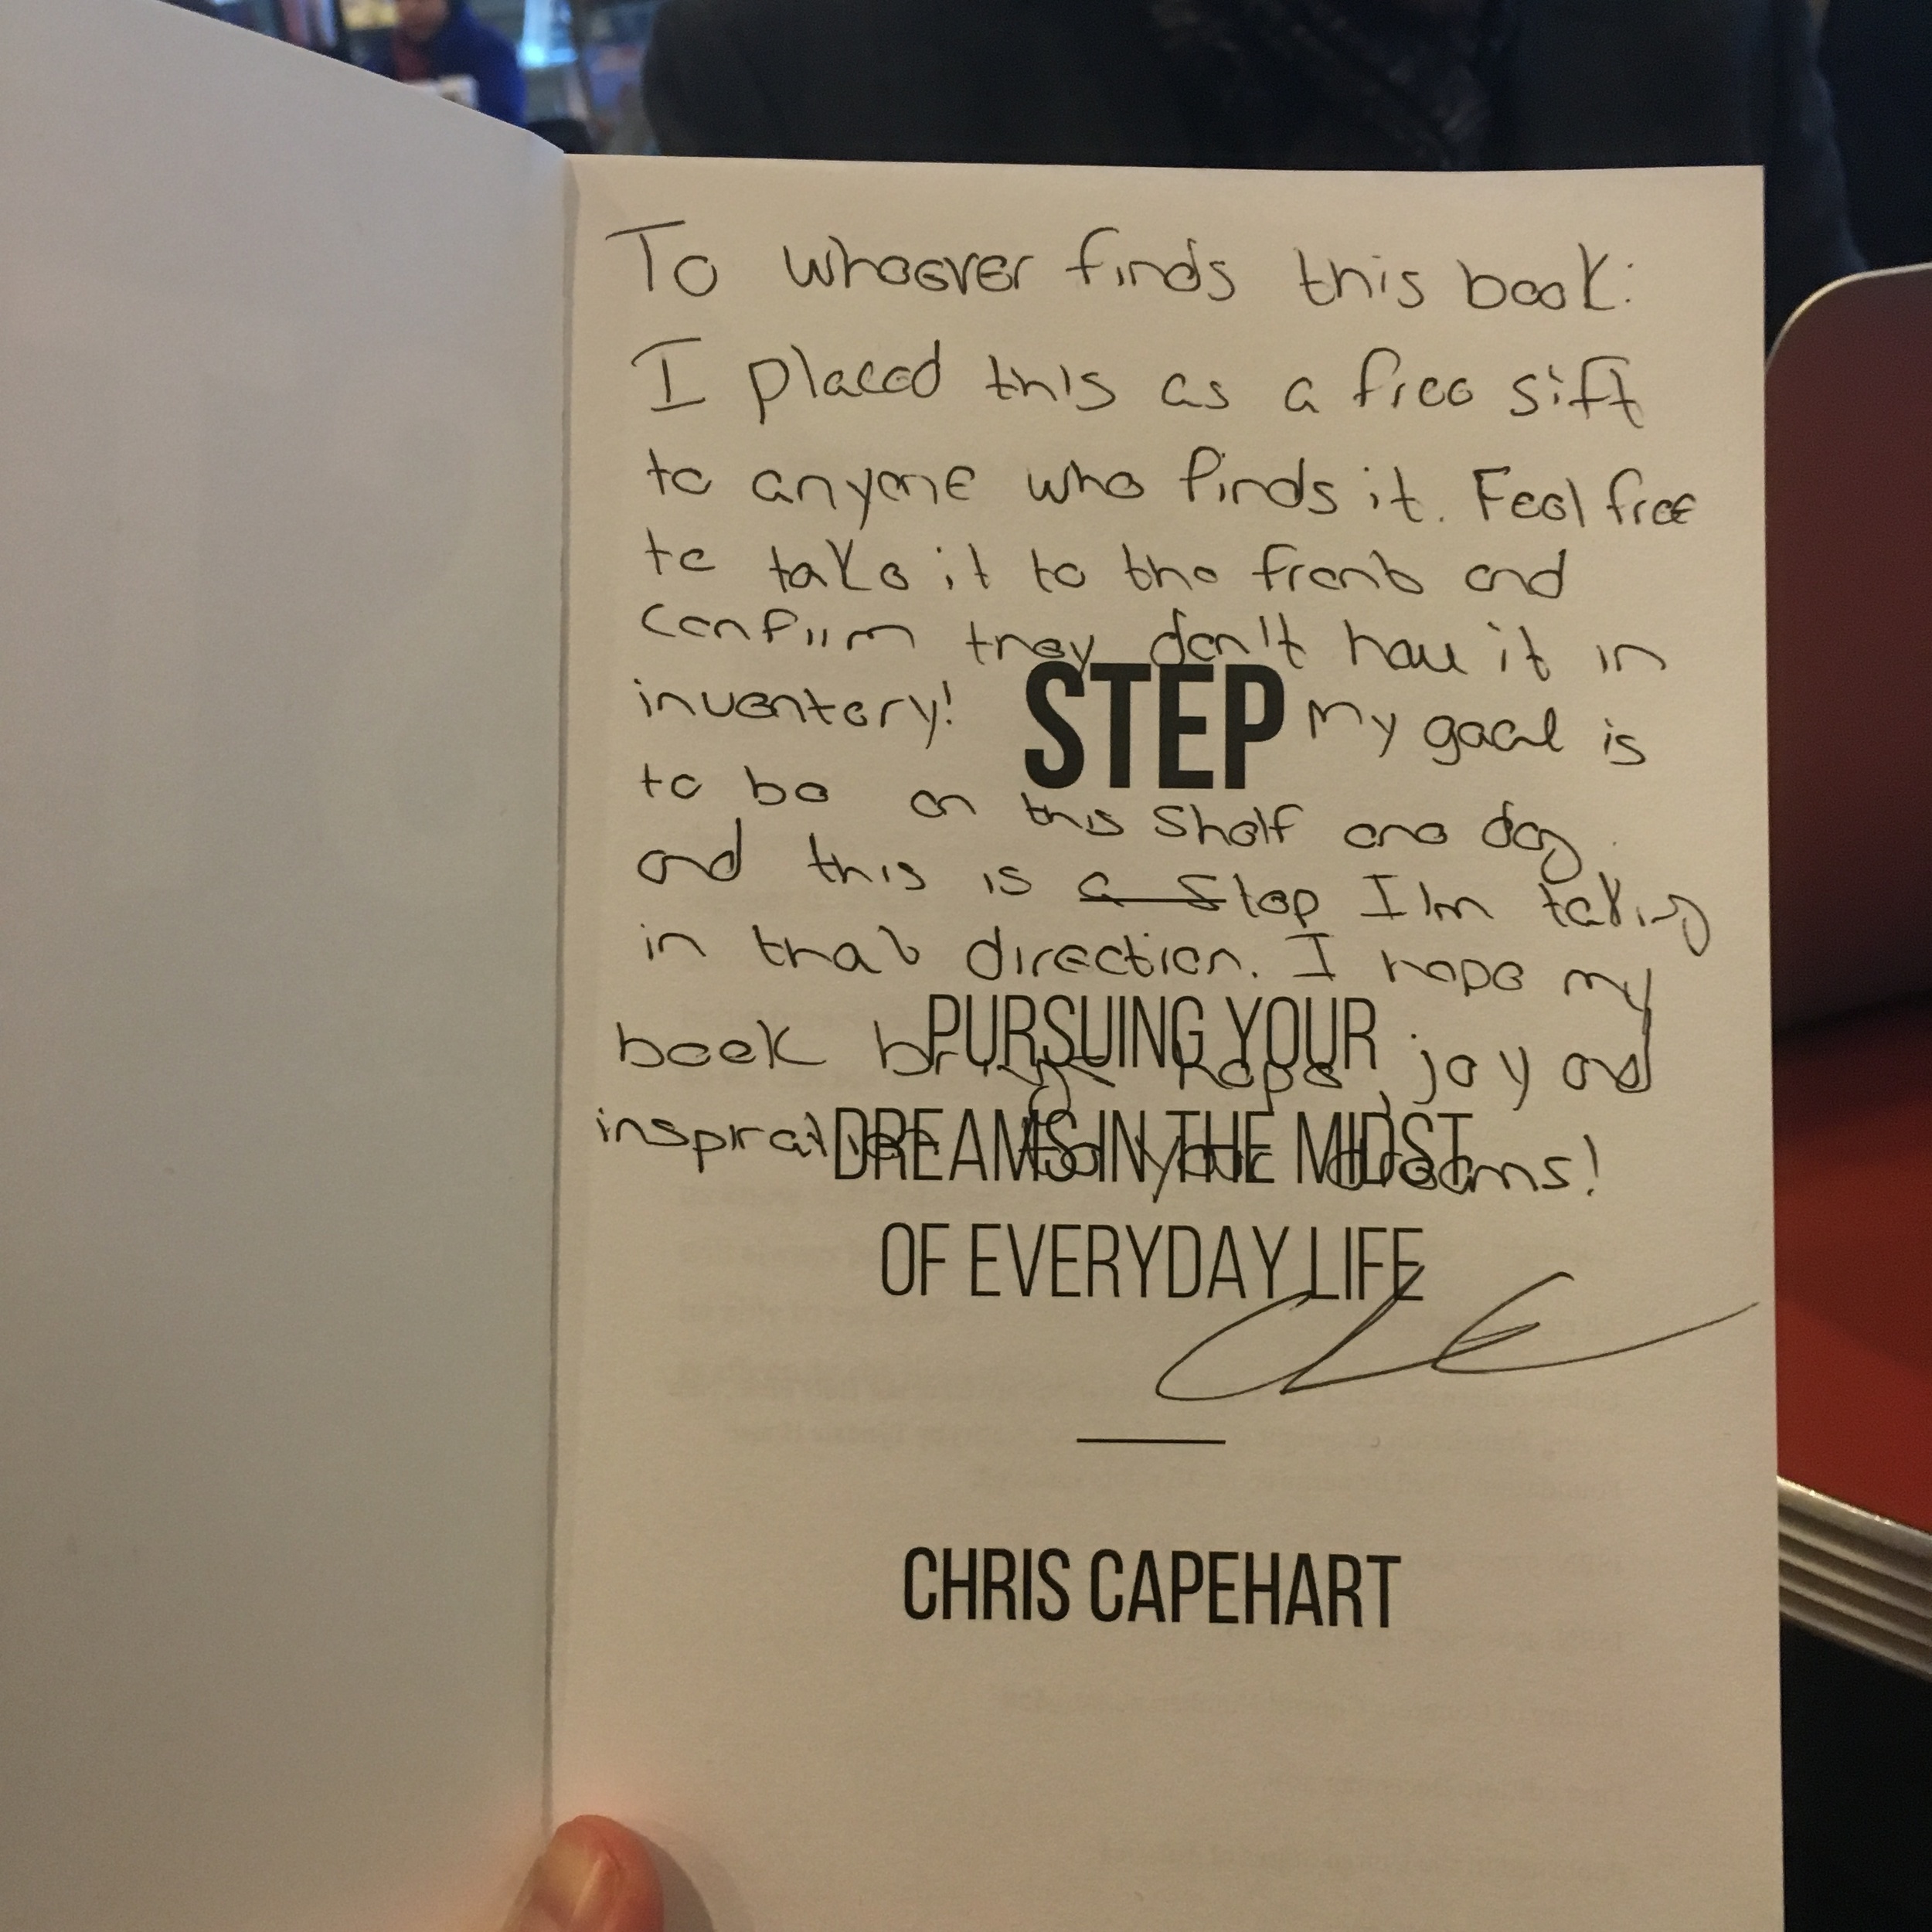 To whoever finds this book:
I placed this as a free gift
to anyone who finds it. Feel free
to take it to the front and
confirm they don't have it in
inventory! STEP My goal is
to be on this shelf one day.
and this is a step I'm taking
in that direction. I hope my
PURSUING YOUR
book brings hope, joy and
DREAMS IN THE MIDST
inspiration to your dreams!
OF EVERYDAY LIFE
CHRIS CAPEHART